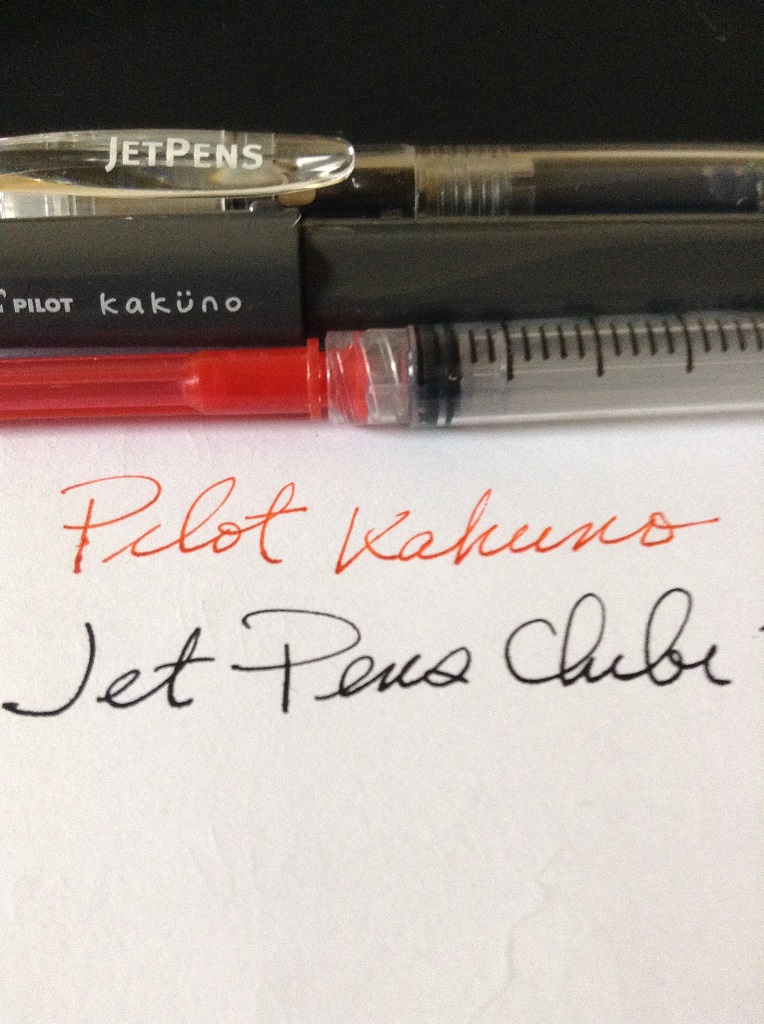 JETPENS
PILOT kaküno
Pilot Kakuno
Jet Pens Chibi